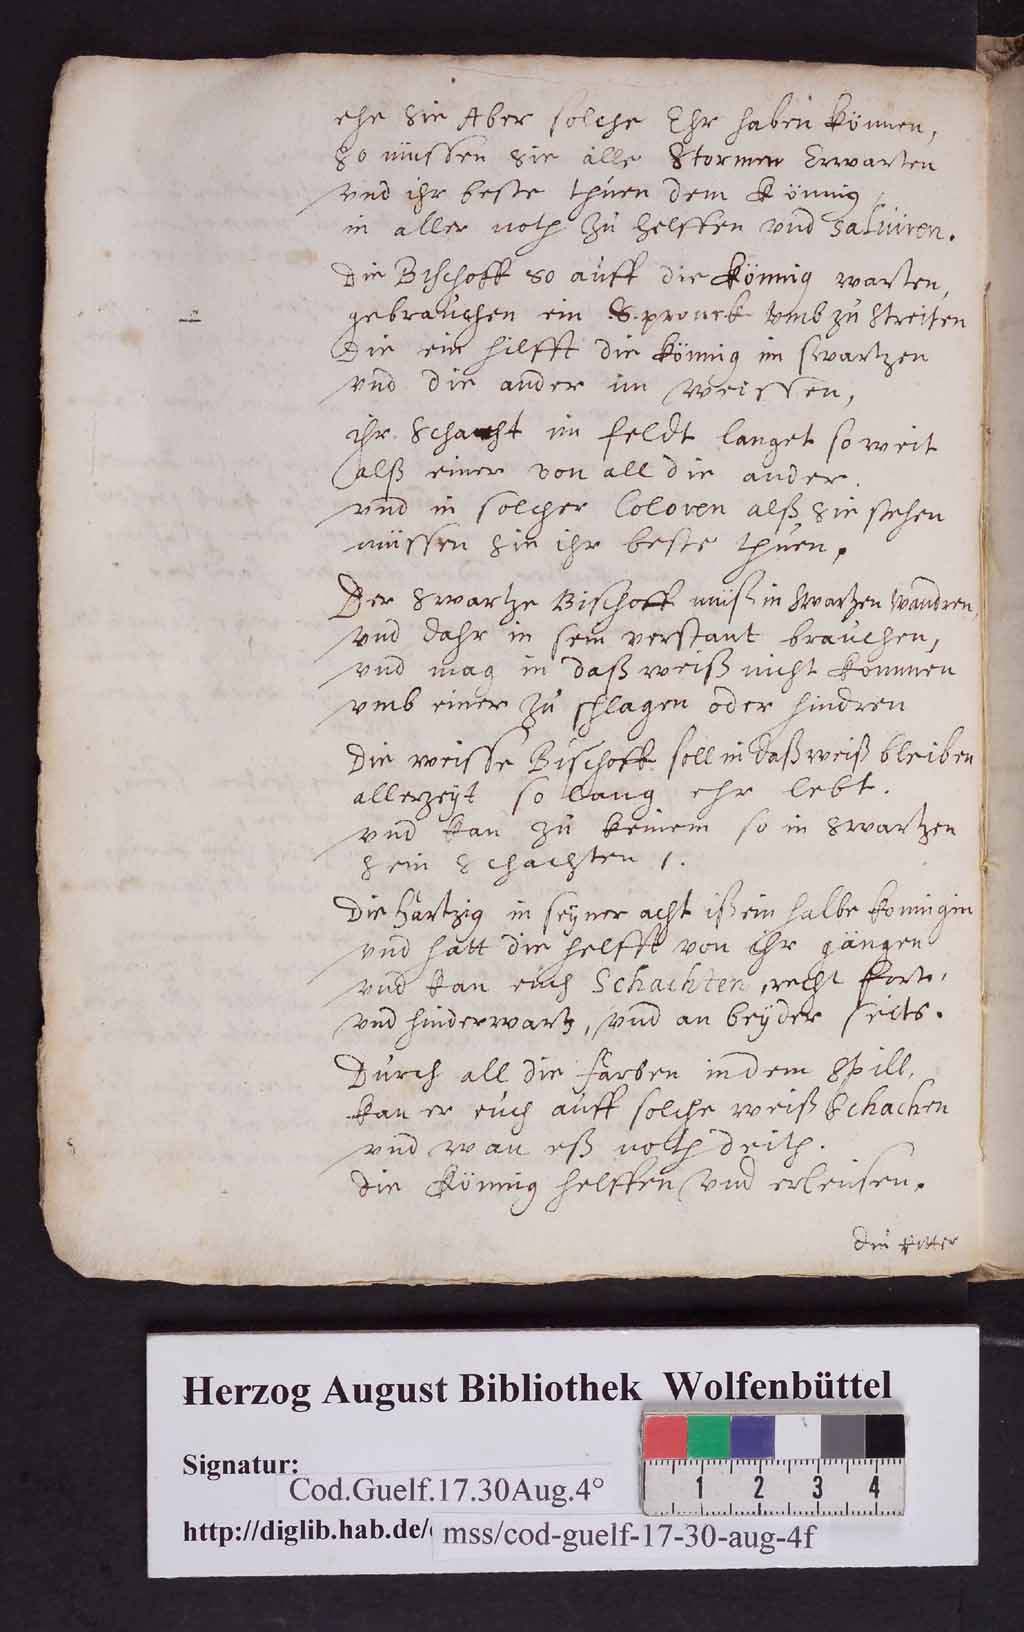 ehe sie Aber solche Ehr haben können,
so müssen sie alle Stormen Erwarten
vnd ihr beste thuen dem Könnig
in aller noth zu helffen vnd saluiren.
Die Bischoff so auff die Könnig warten,
gebrauchen ein Spronck vmb zu streiten
Die ein hilfft die könnig im swartzen
vnd die ander im weissen,
ihr Schacht im feldt langet so weit
alß einer von all die ander.
vnd in solcher Coloren alß sie stehen
müssen sie ihr beste thuen.
Der swartze Bischoff muß in swartzen wandren,
vnd dahr in sein verstant brauchen,
vnd mag in daß weiß nicht kommen
vmb einer zu schlagen oder hindren
Die weisse Bischoff soll in daß weiß bleiben
allerzeyt so lang ehr lebt.
vnd kan zu keinem so in swartzen
sein schachten.
Die Härtzig in seyner acht iß ein halbe konnigin
vnd hatt die helfft von ihr gängen
vnd kan euch Schachten, recht fort,
vnd hinderwartz, vnd an beyder seits.
Durch all die farben in dem Spill,
kan er euch auff solche weiß Schachen
vnd wan eß noth deith.
die Könnig helffen vnd erleusen.
Die Ritter
Herzog August Bibliothek Wolfenbüttel
Signatur:
Cod.Guelf.17.30Aug.4°
http://diglib.hab.de/
mss/cod-guelf-17-30-aug-4f
1 2 3 4